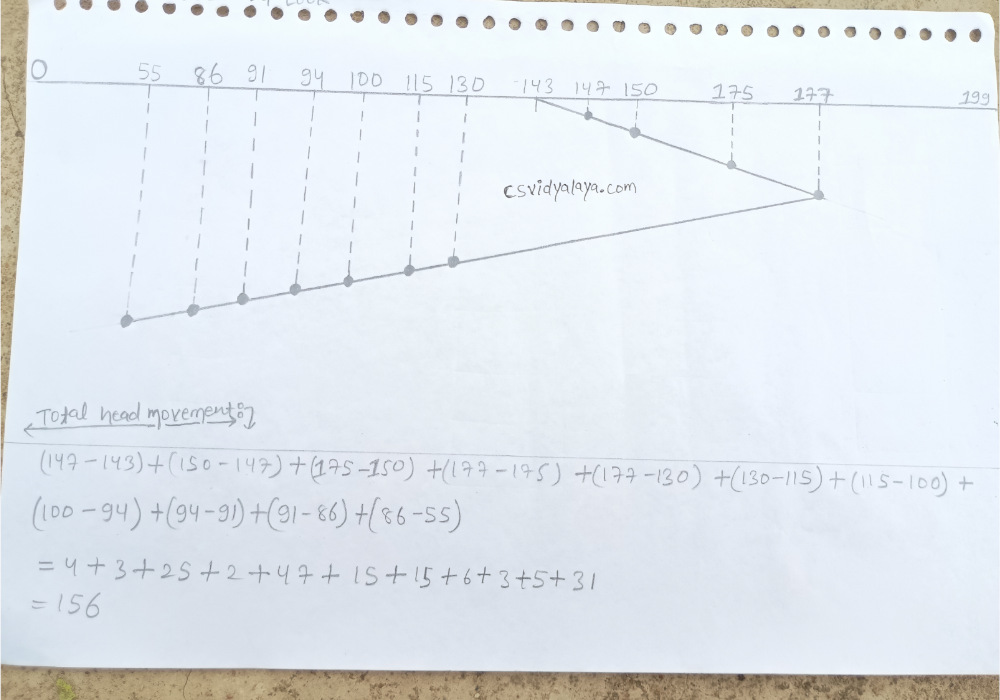 LOOK
0 55 86 91 94 100 115 130 143 147 150 175 177 199
csvidyalaya.com
Total head movement:
(147-143)+(150-147)+(175-150)+(177-175)+(177-130)+(130-115)+(115-100)+
(100-94)+(94-91)+(91-86)+(86-55)
=4+3+25+2+47+15+15+6+3+5+31
=156